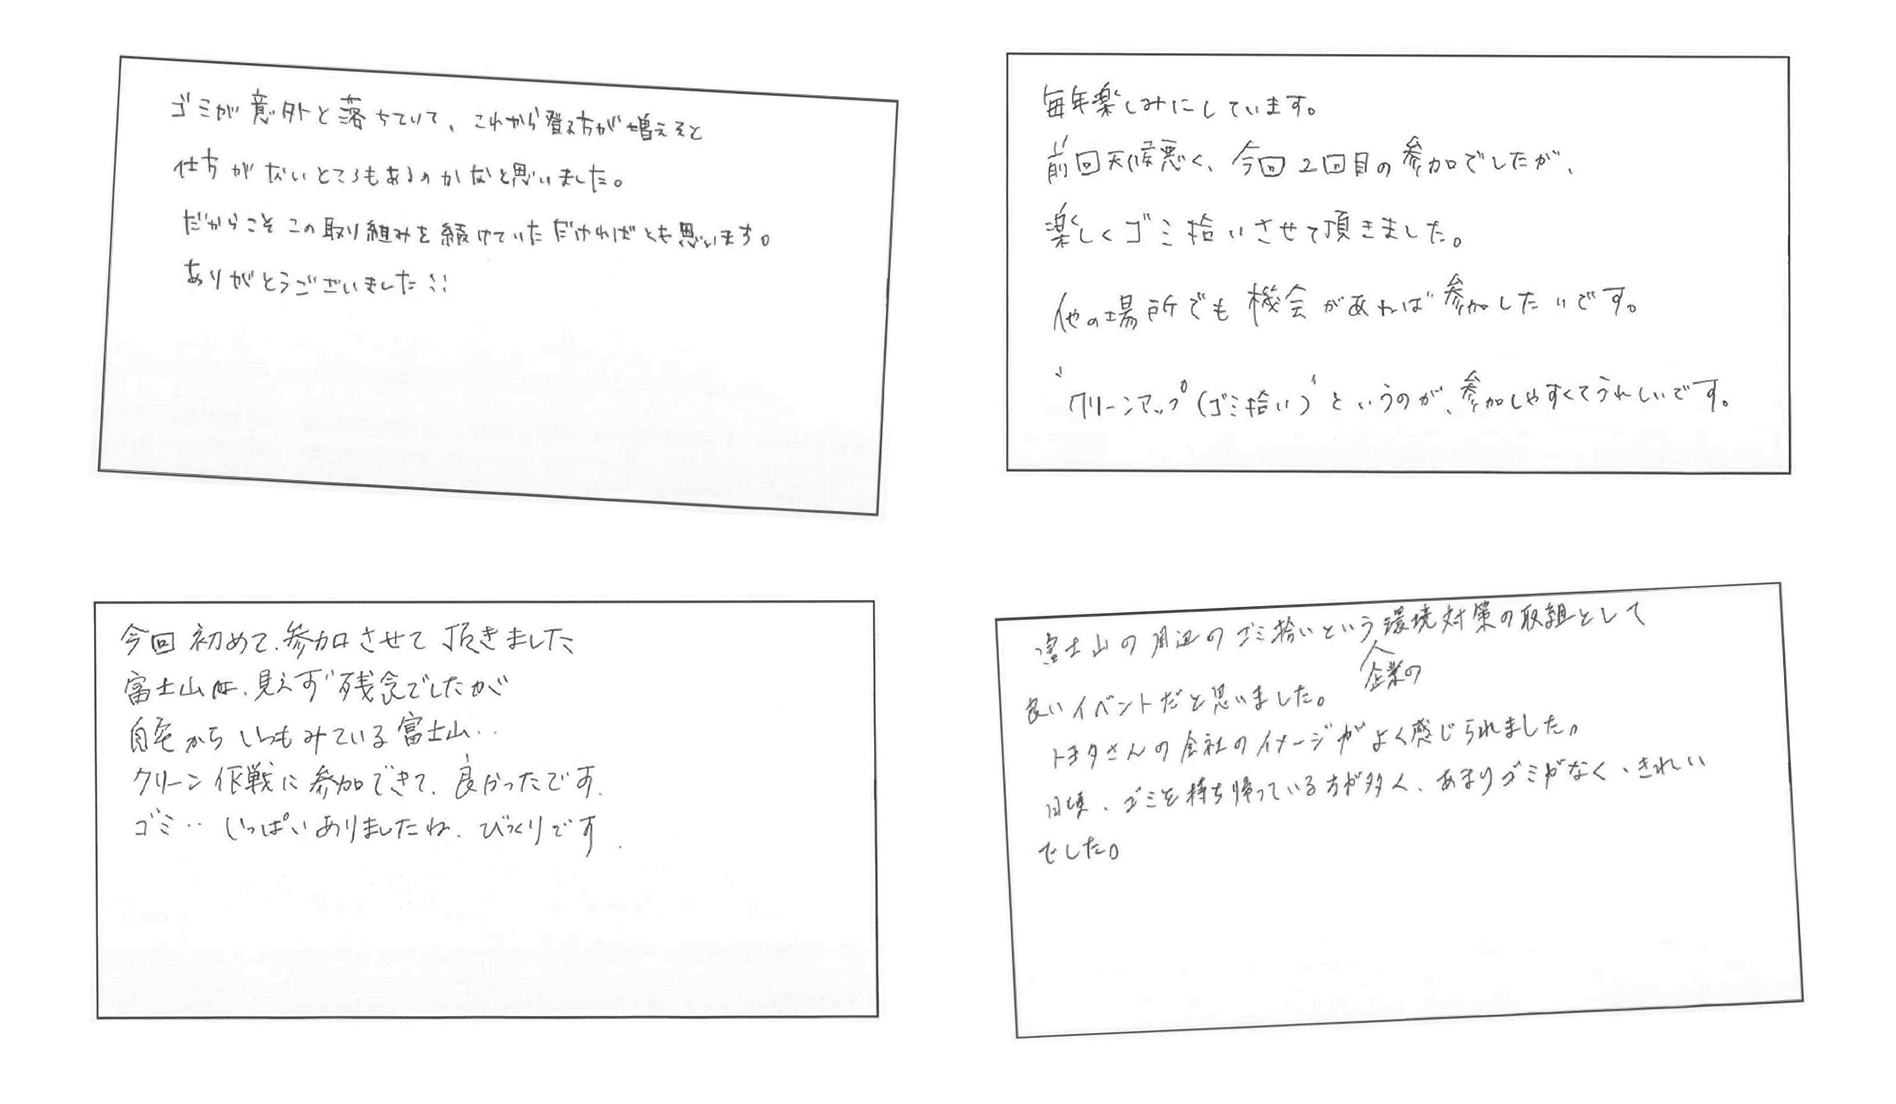 ゴミが意外と落ちていて、これから登る方が増えると
仕方がないところもあるのかなと思いました。
だからこそこの取り組みを続けていただければとも思います。
ありがとうございました!!
毎年楽しみにしています。
前回天候悪く、今回2回目の参加でしたが、
楽しくゴミ拾いさせて頂きました。
他の場所でも機会があれば参加したいです。
“クリーンアップ(ゴミ拾い)”というのが、参加しやすくてうれしいです。
今回初めて、参加させて頂きました
富士山は、見えず残念でしたが
自宅からいつもみている富士山‥
クリーン作戦に参加できて、良かったです.
ゴミ‥いっぱいありましたね. びっくりです.
富士山の周辺のゴミ拾いという環境対策の取組として
企業の
良いイベントだと思いました。
トヨタさんの会社のイメージがよく感じられました。
日頃、ゴミを持ち帰っている方が多く、あまりゴミがなく、きれい
でした。